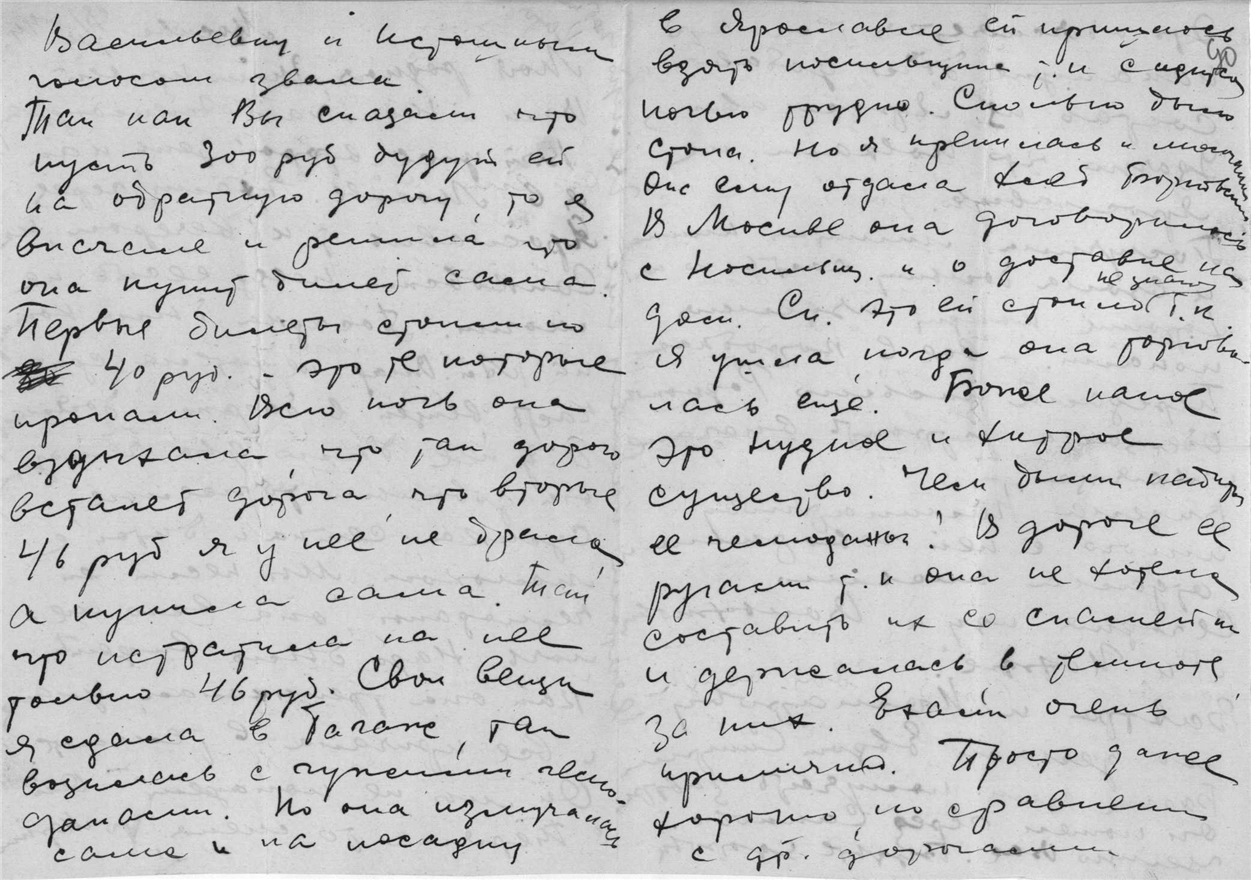 Васильевну и истошным
голосом звала.
Так как Вы сказали что
пусть 300 руб будут ей
на обратную дорогу, то я
вначале и решила что
она купит билет сама.
Первые билеты стоили по
40 руб. - это те которые
пропали. Всю ночь она
вздыхала, что так дорого
встанет дорога, что вторые
46 руб я у неё не брала,
а купила сама. Так
что истратила на неё
только 46 руб. Свои вещи
я сдала в багаж, так
возилась с чужими чемо-
данами. Но она измучилась
сама и на посадку
в Ярославле ей пришлось
взять носильщика т.к садиться
ночью трудно. Сколько было
стона. Но я крепилась и молчала
Она ему отдала хлеб
В Москве она договорилась
с носильщ. и о доставке на
дом. Ск. это ей стоило не знаю т.к.
я ушла, когда она торгова-
лась ещё. Боже какое
это нудное и хитрое
существо. Чем были набиты
её чемоданы! В дороге её
ругали т.к она не хотела
составить их со скамейки
и держалась в темноте
за них. Ехали очень
прилично. Просто даже
хорошо, по сравнению
с др. дорогами